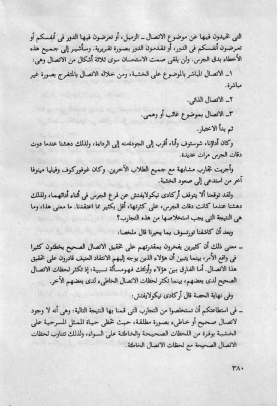 التي تحيدون فيها عن موضوع الاتصال ـ الزميل، أو تعرضون فيها الدور في أنفسكم أو
تعرضون أنفسكم في الدور، أو تقدمون الدور بصورة تقريرية. وسأشير إلى جميع هذه
الأخطاء بدق الجرس. ولن يلقى صمت الاستحسان سوى ثلاثة أشكال من الاتصال وهي:
١ ـ الاتصال المباشر بالموضوع على الخشبة، ومن خلاله الاتصال بالمتفرج بصورة غير
مباشرة.
٢ ـ الاتصال الذاتي.
٣ ـ الاتصال بموضوع غائب أو وهمي.
ثم بدأ الاختبار.
وكان أداؤنا، شوستوف وأنا، أقرب إلى الجودة منه إلى الرداءة، ولذلك دهشنا عندما دوت
دقات الجرس مرات عديدة.
وأجريت تجارب مشابهة مع جميع الطلاب الآخرين. وكان غوفوركوف وفيليا مينوفا
آخر من استدعي إلى صعود الخشبة.
ولقد توقعنا ألا يتوقف أركادي نيكولايفتش عن قرع الجرس في أثناء أدائهما، ولذلك
دهشنا عندما كانت دقات الجرس، على كثرتها، أقل بكثير مما اعتقدنا. ما معنى هذا، وما
هي النتيجة التي يجب استخلاصها من هذه التجارب؟
وبعد أن كاشفنا تورتسوف بما يحيرنا قال ملخصا:
ـ معنى ذلك أن كثيرين يفخرون بمقدرتهم على تحقيق الاتصال الصحيح يخطئون كثيرا
في واقع الأمر، بينما يتبين أن هؤلاء الذين يوجه إليهم الانتقاد العنيف قادرون على تحقيق
هذا الاتصال. أما الفارق بين هؤلاء وأولئك فهو مسألة نسبية: إذ تكثر لحظات الاتصال
الصحيح لدى بعضهم، بينما تكثر لحظات الاتصال الخاطىء لدى بعضهم الآخر.
وفي نهاية الحصة قال أركادي نيكولايفتش:
ـ في استطاعتكم أن تستخلصوا من التجارب التي قمنا بها النتيجة التالية: وهي أنه لا وجود
لاتصال صحيح أو خاطىء بصورة مطلقة، حيث تحظى حياة الممثل المسرحية على
الخشبة بوفرة من اللحظات الصحيحة والخاطئة على السواء، ولذلك تتناوب لحظات
الاتصال الصحيحة مع لحظات الاتصال الخاطئة.
٣٨٠